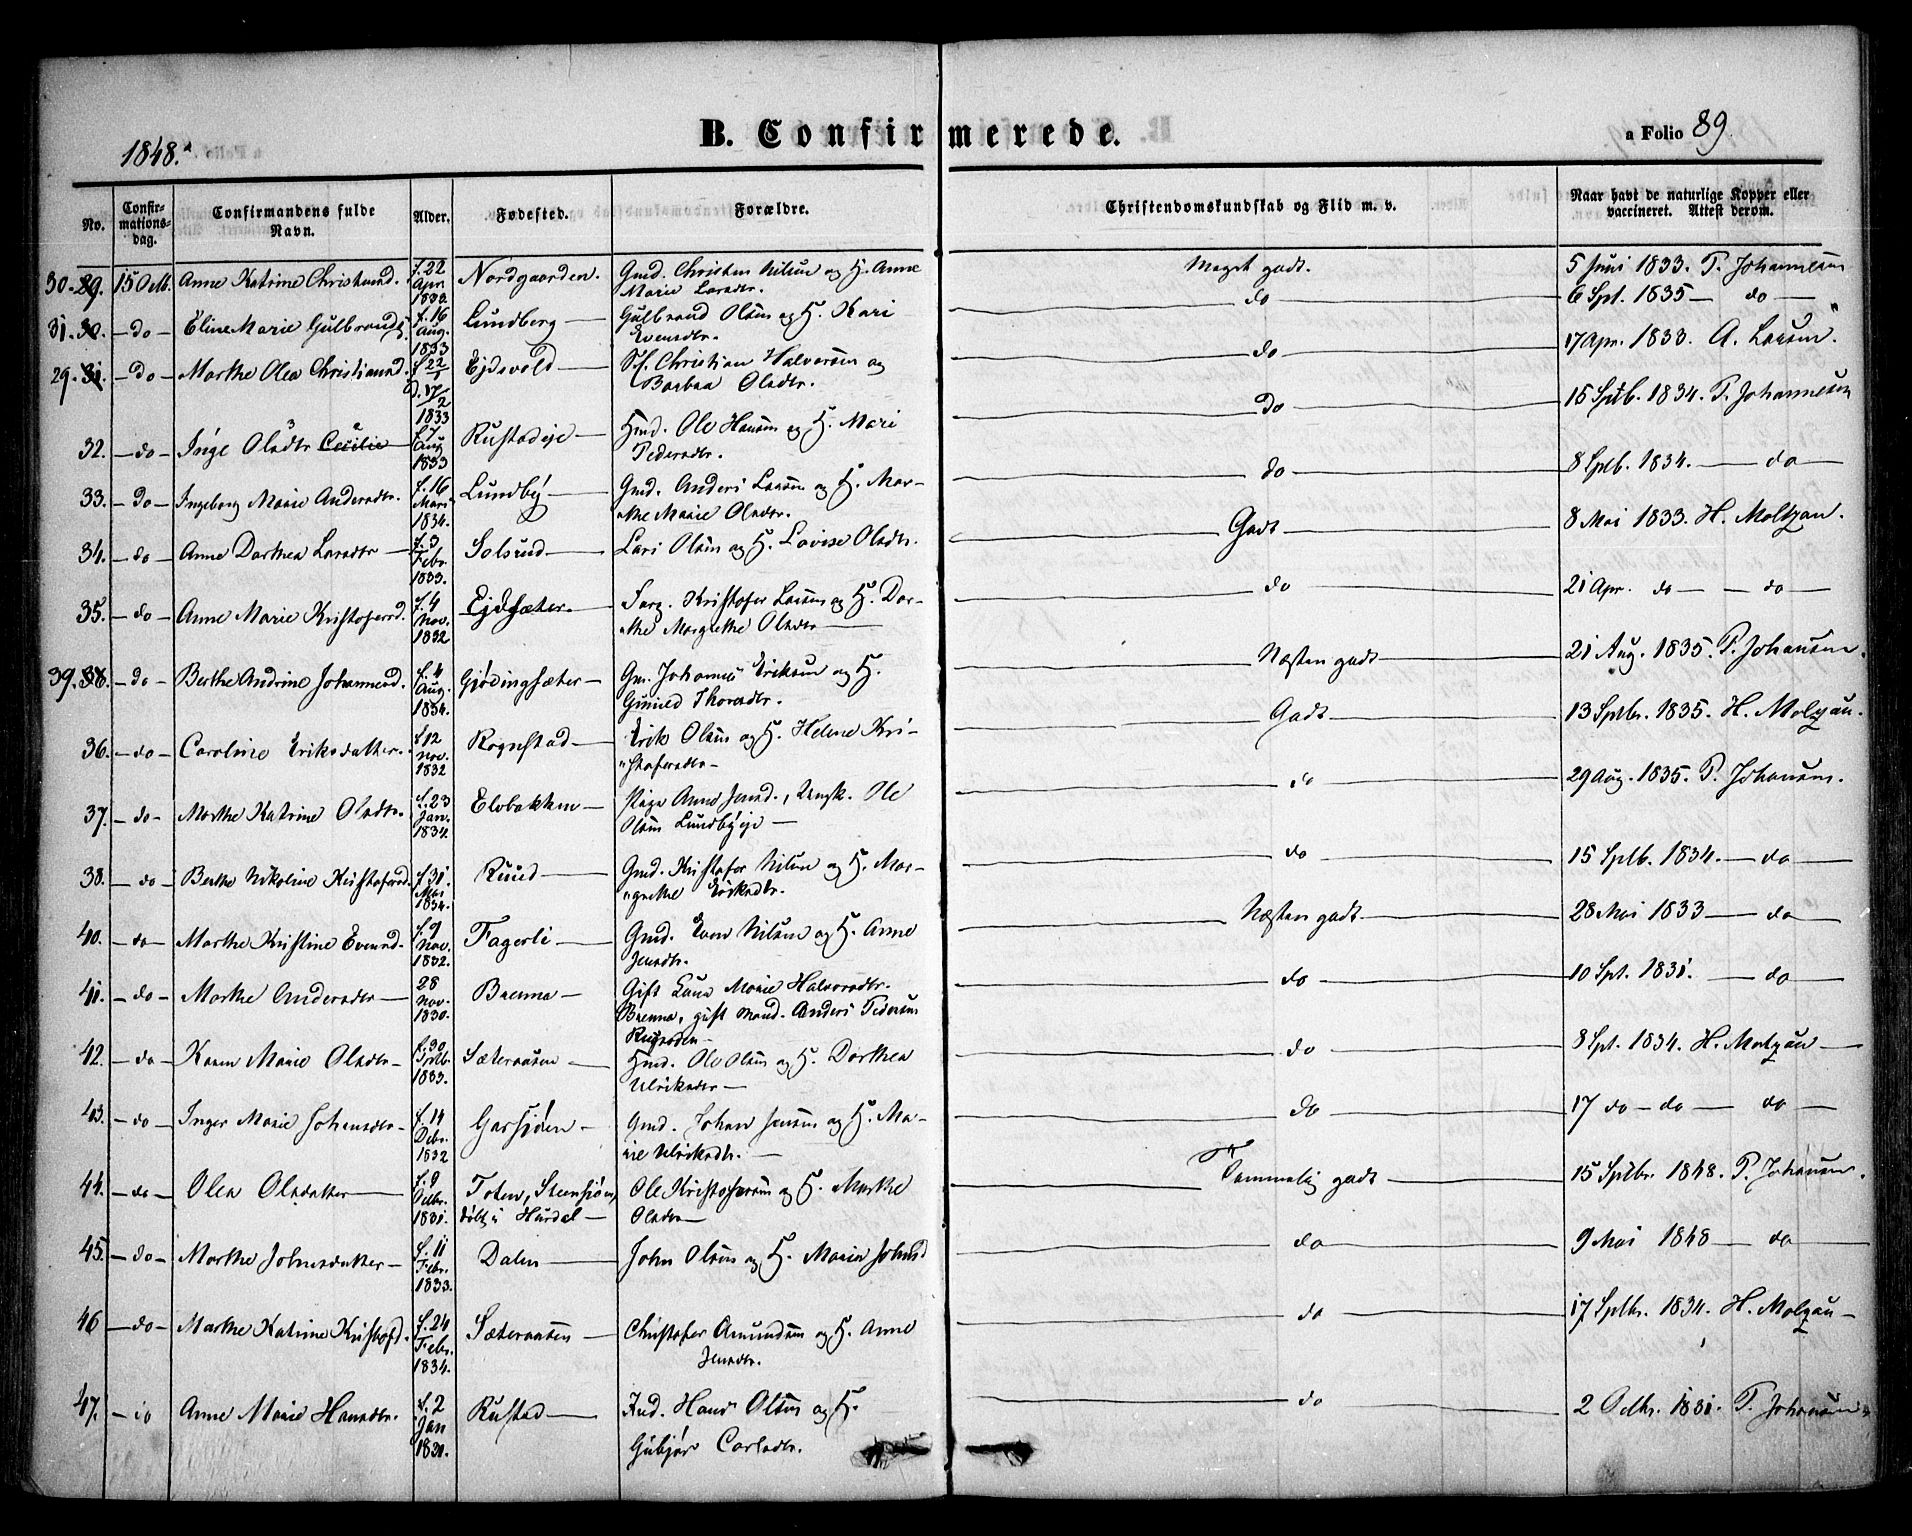 1848.
B. Confirmerede.
a Folio 89
No.
Confirmationsdag.
Confirmandens fulde Navn.
Alder.
Fødested.
Forældre.
Christendomskundskab og Flid m. v.
Naar havt de naturlige Kopper eller vaccineret. Attest derom.
30. 29. 15 Octb. Anne Katrine Christensd. f. 22 Apr. 1833. Nordgaarden. Gmd. Christen Nilsen og H. Anne Marie Larsdtr. Meget godt. 5 Juni 1833. P. Johannesen
31. 30. — do Eline Marie Gulbrandsd. f. 16 Aug. 1833 Lundberg — Gulbrand Olsen og H. Kari Evensdtr. do 6 Spt. 1835 — do —
29. 31. — do — Marthe Olea Christiansd. f. 22/1 d. 17/2 1833 Ejdsvold — Sf. Christian Halvorsen og Barbra Olsdtr. do 17 Apr. 1833. A. Larsen
32. — do — Inge Olsdtr Cecilie f. 7 Aug 1833 Rustadeje — Hmd. Ole Hansen og H. Mari Pedersdtr. do 15 Sptb. 1834. P. Johannesen
33. — do — Ingeborg Marie Andersdtr. f. 16 Mars 1834. Lundby — Gmd. Anders Larsen og H. Marthe Marie Olsdtr. do 8 Sptb. 1834. — do —
34. — do — Anne Dorthea Larsdtr — f. 3 Febr. 1833. Solsrud — Lars Olsen og H. Lovise Olsdtr. Godt 8 Mai 1833. H. Moltzau.
35. — do — Anne Marie Kristofersd. f. 4 Nov. 1832 Ejdsæter. — Kristofer Larsen og H. Dorthe Margrethe Olsdtr — do 21 Apr. do — — do —
39. 36. — do — Berthe Andrine Johannesd. f. 4 Aug. 1834. Gjødingsæter — Gm. Johannes Eriksen og H. Gunild Thorsdtr. Næsten godt 21 Aug. 1835. P. Johansen.
36. — do — Caroline Eriksdatter. f. 12 Nov. 1832 Rognstad — Erik Olsen og H. Helene Kristofersdtr — Godt 13 Sptbr. 1835. H. Molzau.
37. — do — Marthe Katrine Olsdtr. f. 23 Jan. 1834. Elvbakken — Pige Anne Jensd., Ungk. Ole Olsen Lundbyeje — do 29 Aug. 1835. P. Johansen.
38. — do — Berthe Nikoline Kristofersd. f. 31. Mai 1834. Ruud — Gmd. Kristofer Nilsen og H. Margrethe Eriksdtr. do 15 Sptb. 1834. — do —
40. — do — Marthe Kristine Evensd. f. 7 Nov. 1832. Fagerli — Gmd. Even Nilsen og H. Anne Jensdtr. Næsten godt 28 Mai 1833 — do —
41. — do — Marthe Andersdtr — 28 Nov. 1830. Brenna — Gift Marie Halvorsdtr. Brenna, gift Mand. Anders Pedersen do 10 Spt. 1831. — do —
42. — do — Karen Marie Olsdtr — f. 30 Sptb. 1833. Sæteraasen — Hmd. Ole Olsen og H. Dorthea Ulriksdtr — do 8 Spt. 1834. H. Molzau —
43. — do — Inger Marie Johansdtr — f. 14 Dcbr. 1832 Garsjøen — Gmd. Johan Jensen og H. Marie Ulriksdtr. — do 17 do — do — do —
44. — do — Olea Olsdatter — f. 9 Octbr. 1831. Toten, Steensjøn, døbt i Hurdal — Ole Kristofersen og H. Marthe Olsdtr — Temmelig godt 15 Sptbr. 1848. P. Johansen.
45. — do — Marthe Johnsdatter — f. 11 Febr. 1833. Dalen — John Olsen og H. Maria Johnsd do 9 Mai 1848 — do —
46 — do — Marthe Katrine Kristofd. f. 24 Febr. 1834. Sæteraasen — Christofer Amundsen og H. Anne Jensdtr. do 17 Sptbr. 1834. H. Molzau —
47. — do Anne Marie Hansdtr. f. 2 Jan 1831. Rustad — Ind. Hans Olsen og H. Gubjør Carlsdtr. do 2 Octbr. 1831. P. Johansen